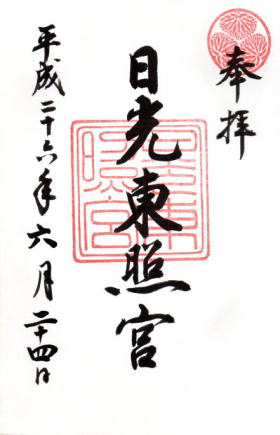 奉拝
日光東照宮
平成二十六年六月二十四日